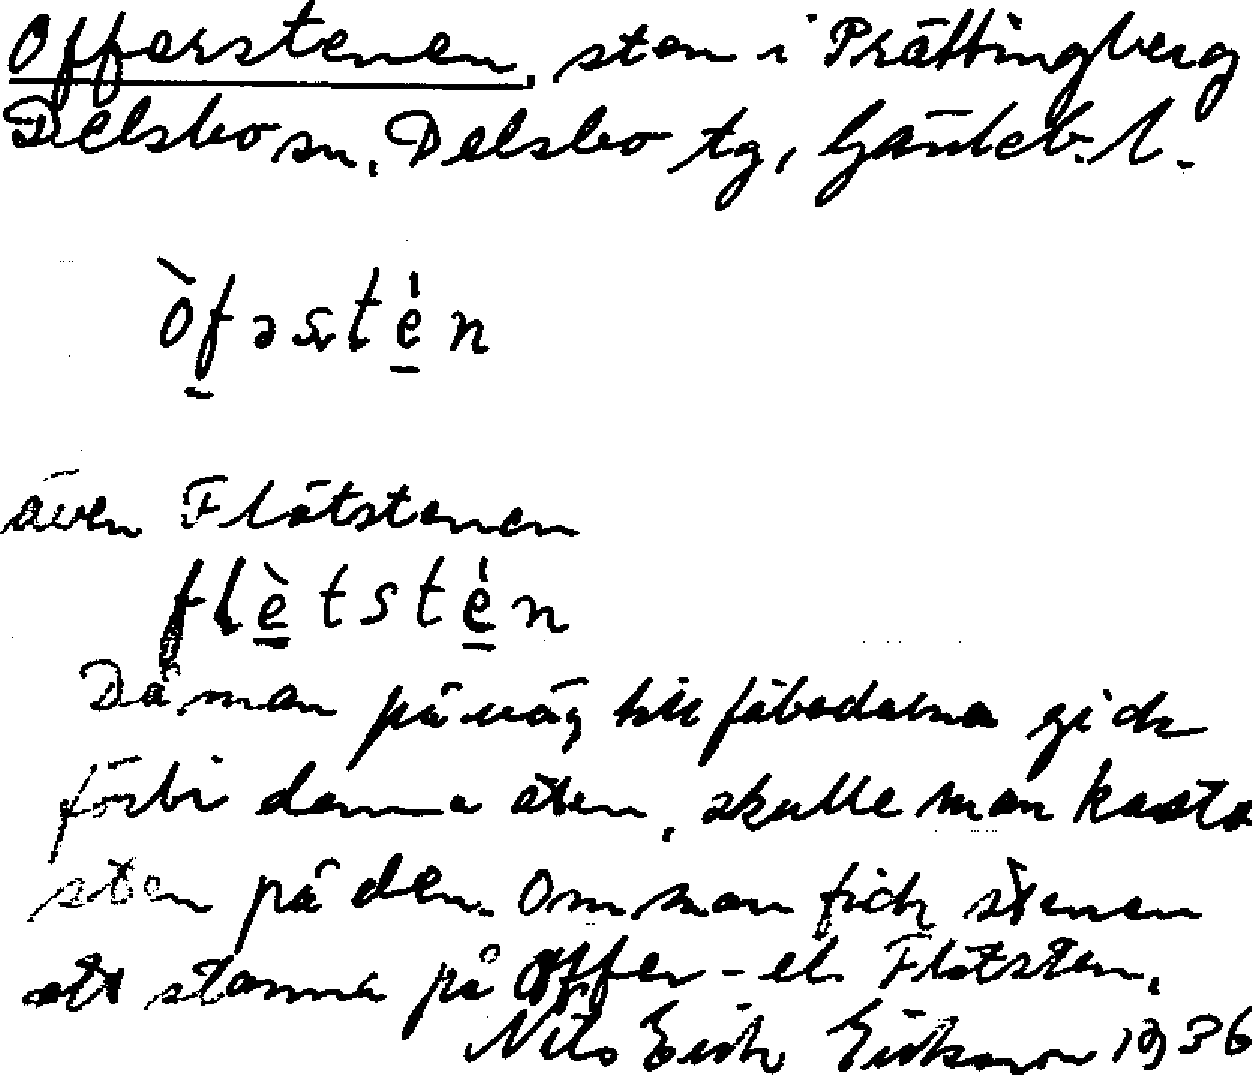 Offerstenen, sten i Prättingberg
Delsbo sn, Delsbo tg, Gävleb. l.
òfəstén
även Flätstenen
flètstén
Då man på väg till fäbodarna gick
förbi denna sten, skulle man kasta
sten på den. Om man fick stenen
att stanna på Offer- el. Flätsten,
Nils Erik Erikson 1936